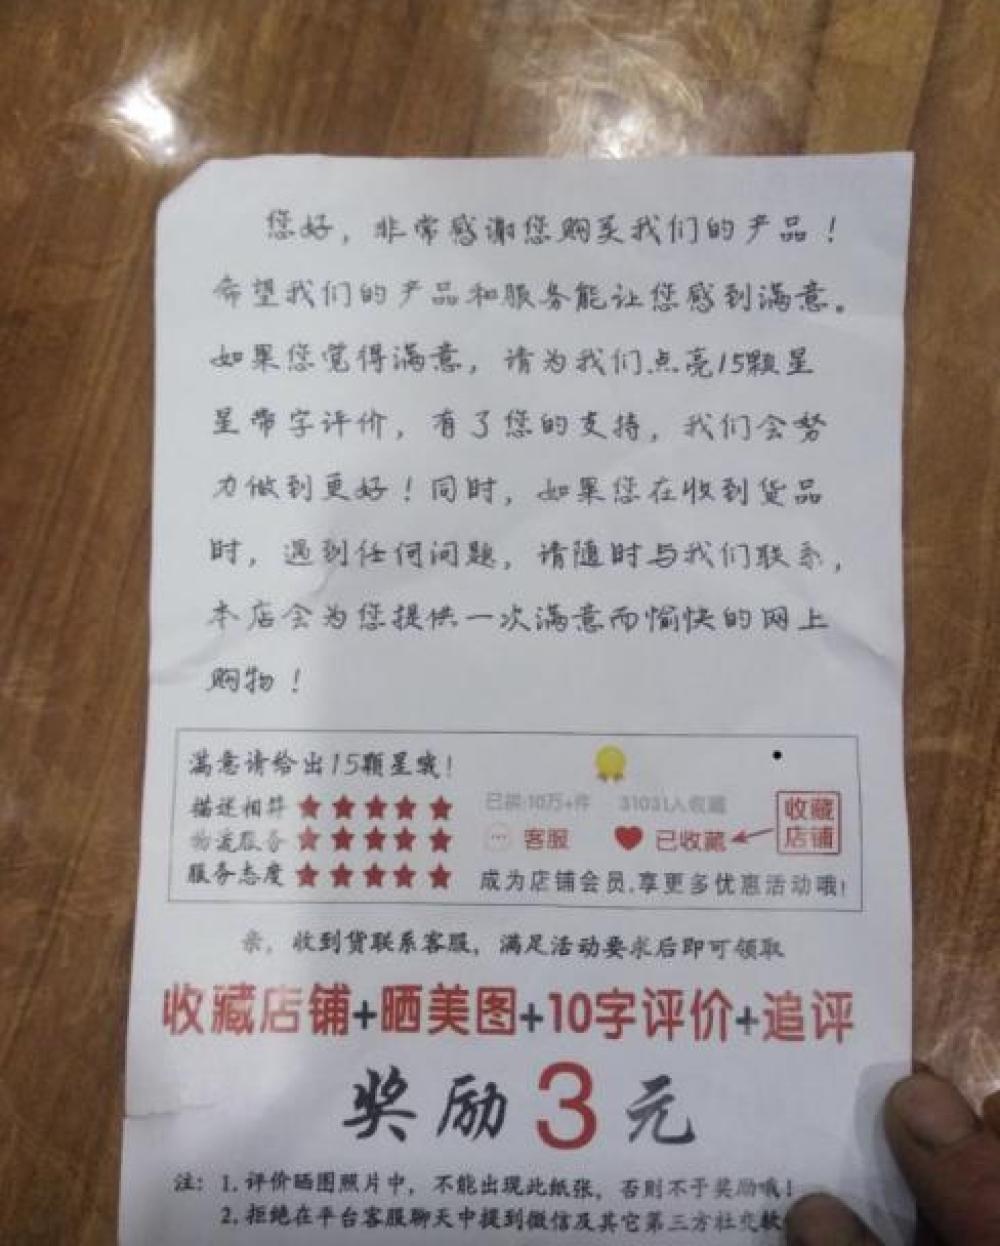 您好，非常感谢您购买我们的产品！
希望我们的产品和服务能让您感到满意。
如果您觉得满意，请为我们点亮15颗星
星带字评价，有了您的支持，我们会努
力做到更好！同时，如果您在收到货品
时，遇到任何问题，请随时与我们联系，
本店会为您提供一次满意而愉快的网上
购物！
满意请给出15颗星哦！
描述相符 ★★★★★
物流服务 ★★★★★
服务态度 ★★★★★
已拼:10万+件 31031人收藏
客服 已收藏
收藏
店铺
成为店铺会员,享更多优惠活动哦!
亲，收到货联系客服，满足活动要求后即可领取
收藏店铺+晒美图+10字评价+追评
奖励3元
注：1.评价晒图照片中，不能出现此纸张，否则不予奖励哦！
2.拒绝在平台客服聊天中提到微信及其它第三方社交软